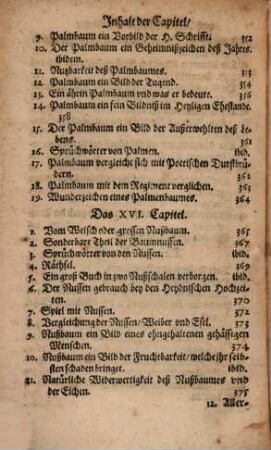 Inhalt der Capitel/
9. Palmbaum ein Vorbild der H. Schrifft. 352
10. Der Palmbaum ein Geheimnißzeichen deß Jahrs.
ibidem.
11. Nutzbarkeit deß Palmbaumes. 353
12. Palmbaum ein Bild der Tugend. 354
13. Ein ährin Palmbaum vnd was er bedeute. 356
14. Palmbaum ein fein Bildniß im Heyligen Ehestande.
358
15. Der Palmbaum ein Bild der Außerwehlten deß Le-
bens. 361
16. Sprüchwörter von Palmen. ibid.
17. Palmbaum vergleicht sich mit Poetischen
drern. 361
18. Palmbaum mit dem Regiment verglichen. 363
19. Wunderzeichen eines Palmenbaumes. 364
Das XVI. Capitel.
1. Vom Welsch oder grossen Nußbaum. 365
2. Sonderbare Theil der Baumnussen. 367
3. Sprüchwörter von den Nussen. ibid.
4. Räthsel. 369
5. Ein groß Buch in zwo Nußschalen verborgen. ibid.
6. Der Nussen gebrauch bey den Heydnischen Hochzei-
ten. 370
7. Spiel mit Nussen. 372
8. Vergleichung der Nussen/ Weiber vnd Esel. 373
9. Nußbaum ein Bild eines ohngehaltenen gehässigen
Menschen. 374
10. Nußbaum ein Bild der Fruchtbarkeit/ welche ihr selb-
sten schaden bringet. ibid.
11. Natürliche Widerwertigkeit deß Nußbaumes vnd
der Eichen. 375
12. Aller-